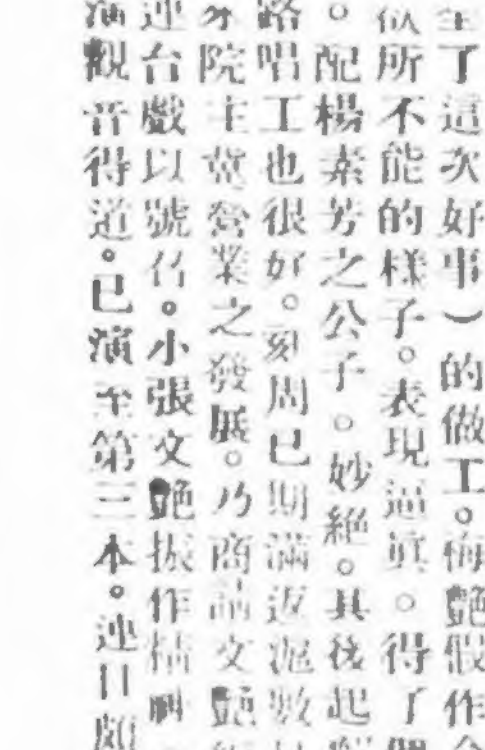 了這次好事）的做工。梅艷假作
似所不能的樣子。表現逼眞。得了
。配楊素芳之公子。妙絕。其後起
路唱工也很好。刻周已期滿返滬數
院主冀營業之發展。乃商請文艷
連台戲以號召。小張文艷振作精神
演觀音得道。已演至第三本。連日頗